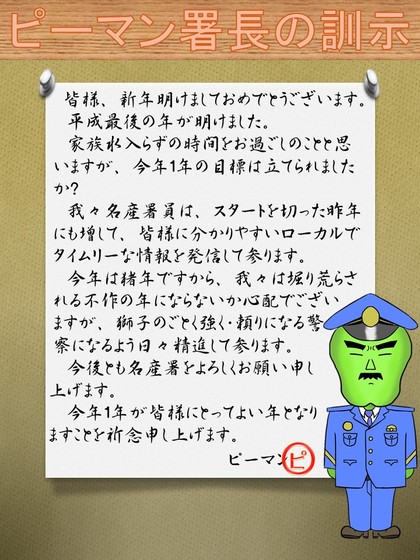 ピーマン署長の訓示
皆様、新年明けましておめでとうございます。
平成最後の年が明けました。
家族水入らずの時間をお過ごしのことと思
いますが、今年1年の目標は立てられました
か?
我々名産署員は、スタートを切った昨年
にも増して、皆様に分かりやすいローカルで
タイムリーな情報を発信して参ります。
今年は猪年ですから、我々は堀り荒らさ
れる不作の年にならないか心配でござい
ますが、獅子のごとく強く・頼りになる警
察になるよう日々精進して参ります。
今後とも名産署をよろしくお願い申し
上げます。
今年1年が皆様にとってよい年となり
ますことを祈念申し上げます。
ピーマン ピ